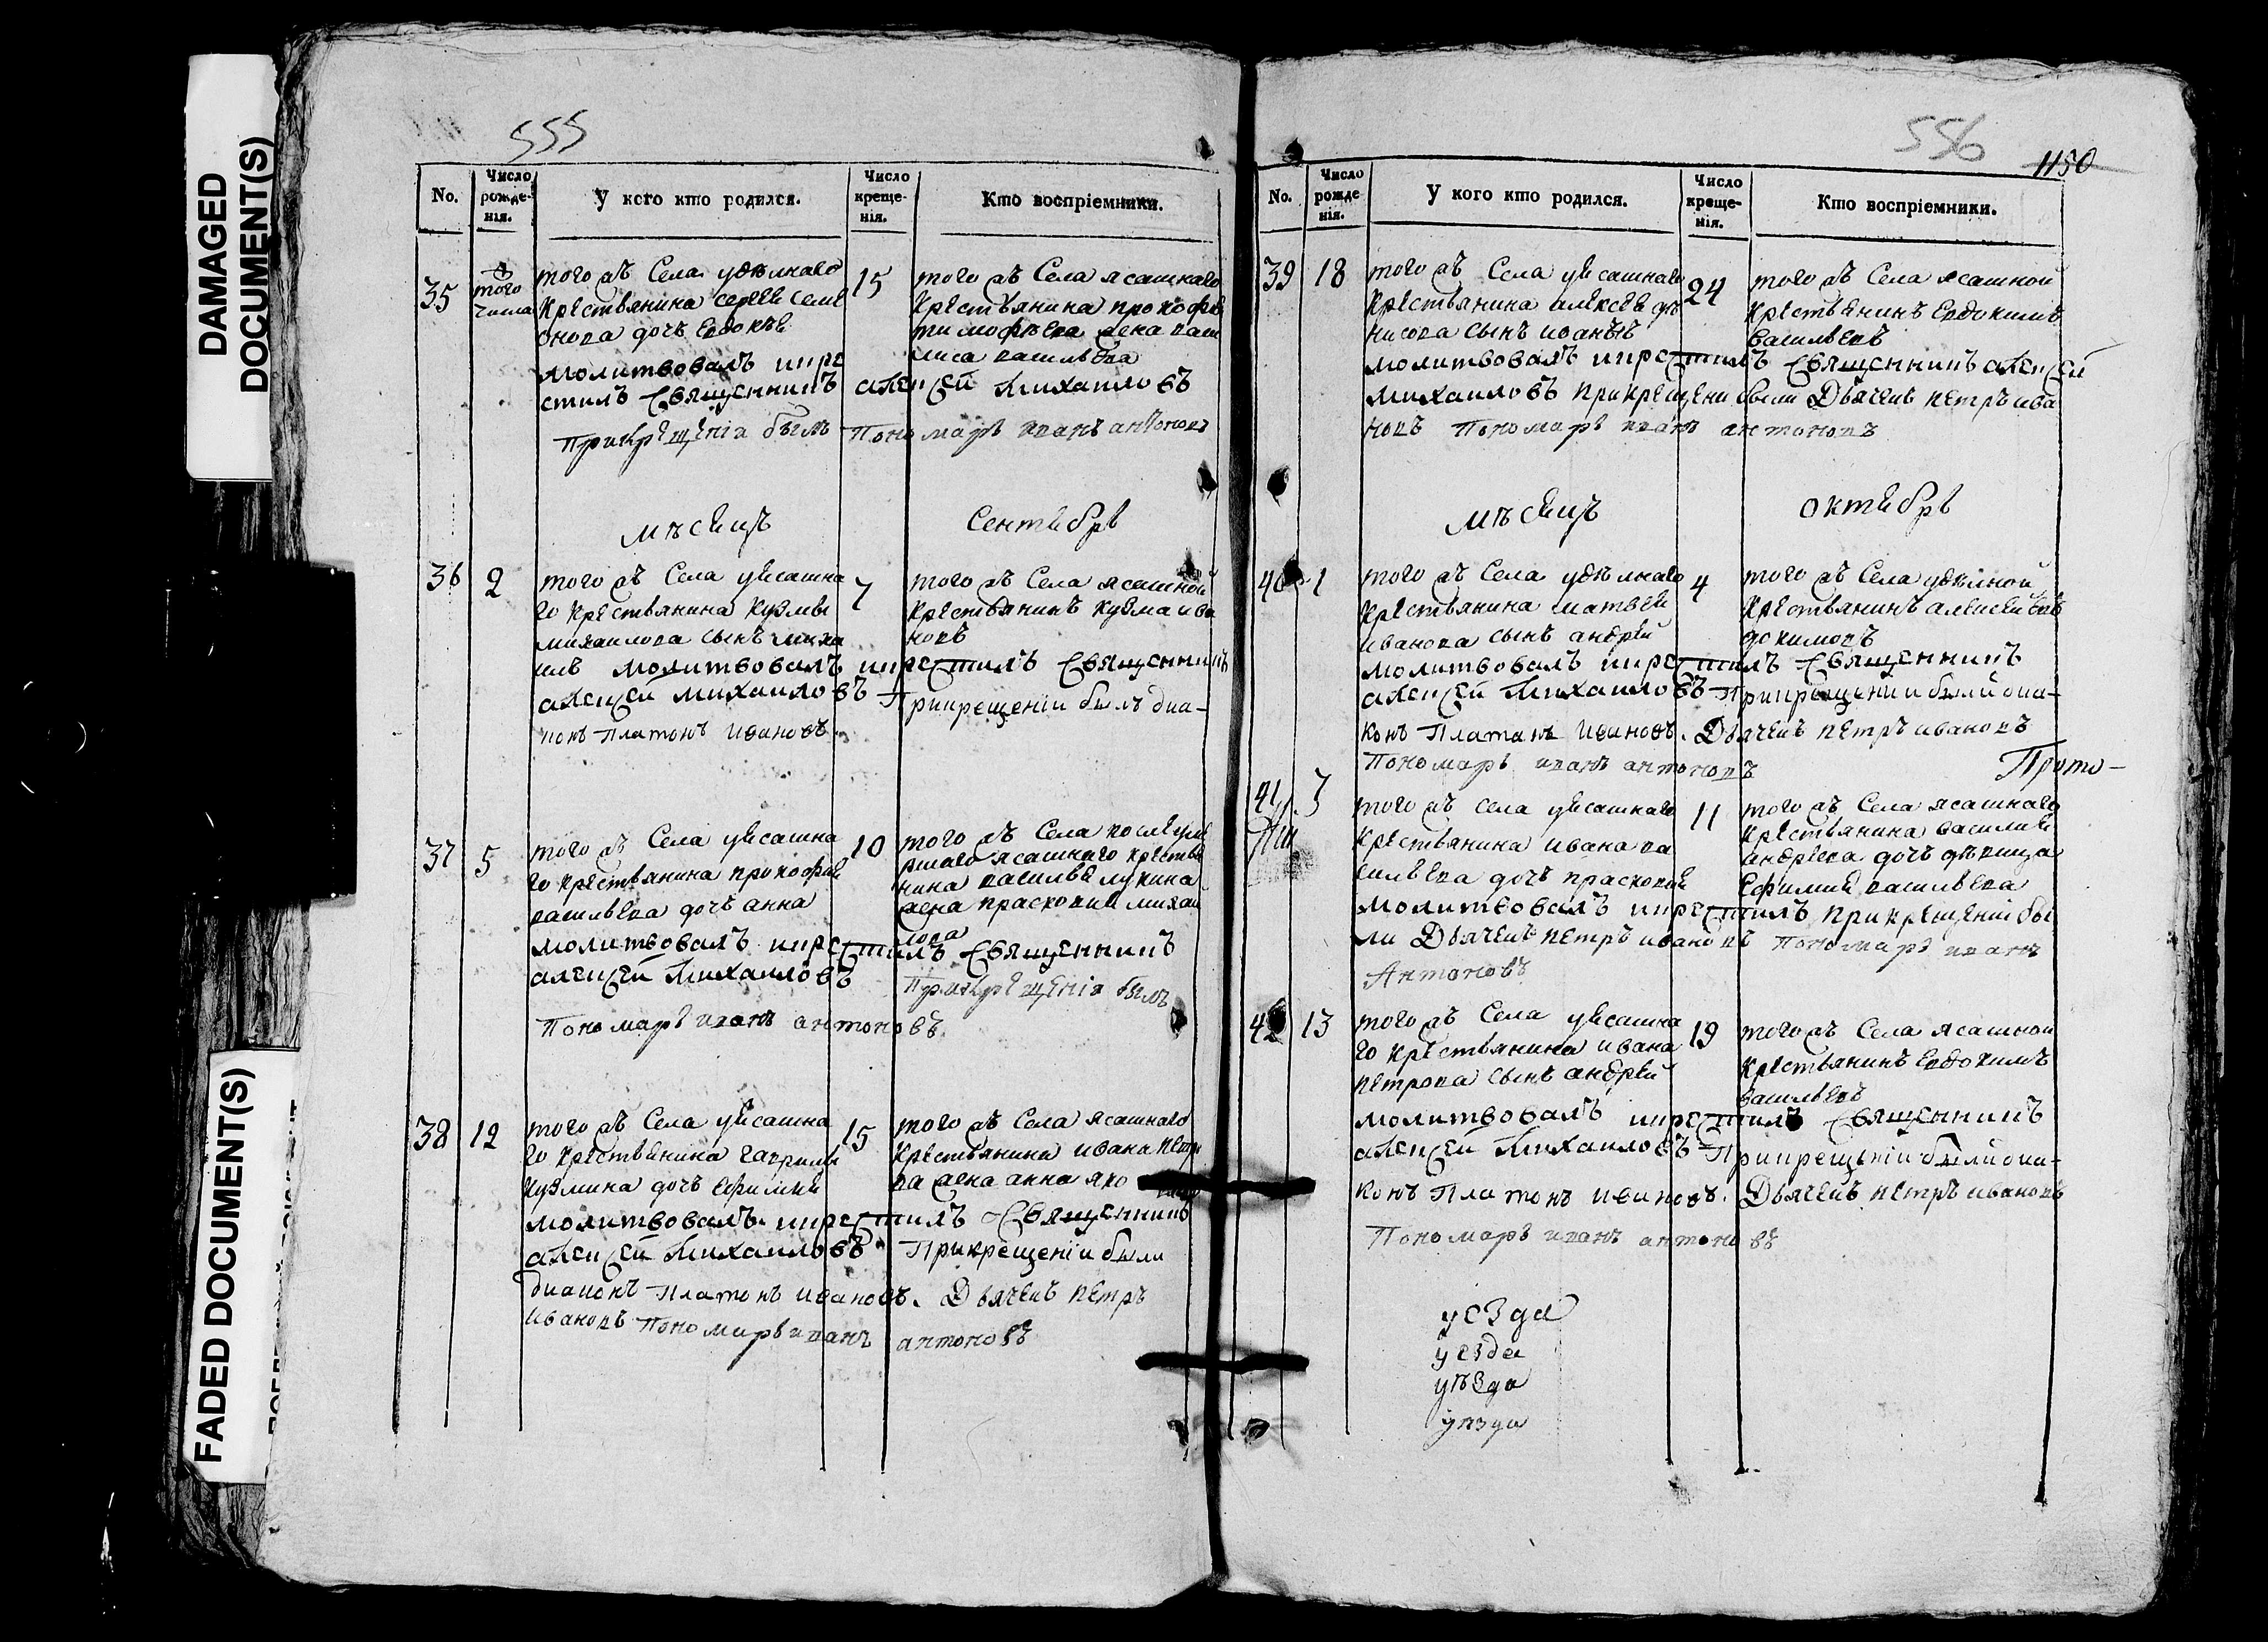 DAMAGED
DOCUMENT(S)
FADED DOCUMENT(S)
555
No.
Число рожде-нія.
У кого кто родился.
Число креще-нія.
Кто воспріемники.
35
того числа
того жъ Села удѣлнаго
Крестьянина сергея семе
онова дочь Евдокѣя
молитвовалъ икре
стилъ Священникъ алексей Михаиловъ
Прикрещеніи былъ Пономарь иванъ антоновъ
15
того жъ Села ясашнаго
Крестьянина прокофья
тимофѣева жена васи
лиса васильева
мѣсяцъ Сентябрь
36
2
того жъ Села уясашна
го крестьянина Кузмы
михаилова сынъ миха
илъ молитвовалъ икрестилъ Священникъ
алексей михаиловъ Прикрещеніи былъ диа-
конъ Платонъ Ивановъ.
7
того жъ Села ясашной
крестьянинъ кузма ива
новъ
37
5
того жъ Села уясашна
го крестьянина прокофья
васильева дочь анна
молитвовалъ икрестилъ Священникъ
алексей Михаиловъ
Прикрещеніи былъ
Пономарь иванъ антоновъ.
10
того жъ Села после уме
ршаго ясашнаго крестья
нина василья лукина
жена прасковия михаи
лова
38
12
того жъ Села уясашна
го крестьянина гаврилы
кузмина дочь Ефимия
молитвовалъ икрестилъ Священникъ
алексей Михаиловъ Прикрещеніи были
диаконъ Платонъ ивановъ. Дьячекъ петръ
ивановъ Пономарь иванъ антоновъ
15
того жъ Села ясашнаго
крестьянина ивана петро
ва жена анна яко
556
1150
No.
Число рожде нія.
У кого кто родился.
Число креще-нія.
Кто воспріемники.
39
18
того жъ Села уясашнаго
крестьянина алексея де
нисова сынъ иванъ
молитвовалъ икрестилъ Священникъ алексей
михаиловъ прикрещени были Дьячекъ петръ ива
новъ Пономарь иванъ антоновъ
24
того жъ Села ясашной
крестьянинъ Евдокимъ
васильевъ
мѣсяцъ октябрь
40
1
того жъ Села удѣлнаго
крестьянина матвея
иванова сынъ андрей
молитвовалъ икрестилъ Священникъ
алексей Михаиловъ Прикрещеніи были диа-
конъ Платонъ Ивановъ. Дьячекъ петръ ивановъ
Пономарь иванъ антоновъ
4
того жъ Села удѣлной
крестьянинъ алексей Ев
докимовъ
Прото-
41
7
того жъ села уясашнаго
крестьянина ивана ва
сильева дочь прасковия
молитвовалъ икрестилъ прикрещеніи бы
ли Дьячекъ петръ ивановъ Пономарь иванъ
Антоновъ
11
того жъ Села ясашнаго
крестьянина василия
андреева дочь девица
Ефимия васильева
42
13
того жъ Села уясашна
го крестьянина ивана
петрова сынъ андрей
молитвовалъ икрестилъ Священникъ
алексей Михаиловъ Прикрещеніи были диа-
конъ Платонъ ивановъ. Дьячекъ петръ ивановъ
Пономарь иванъ антоновъ
19
того жъ Села ясашной
крестьянинъ Евдокимъ
васильевъ
уезда
уезда
уѣзда
уѣзда